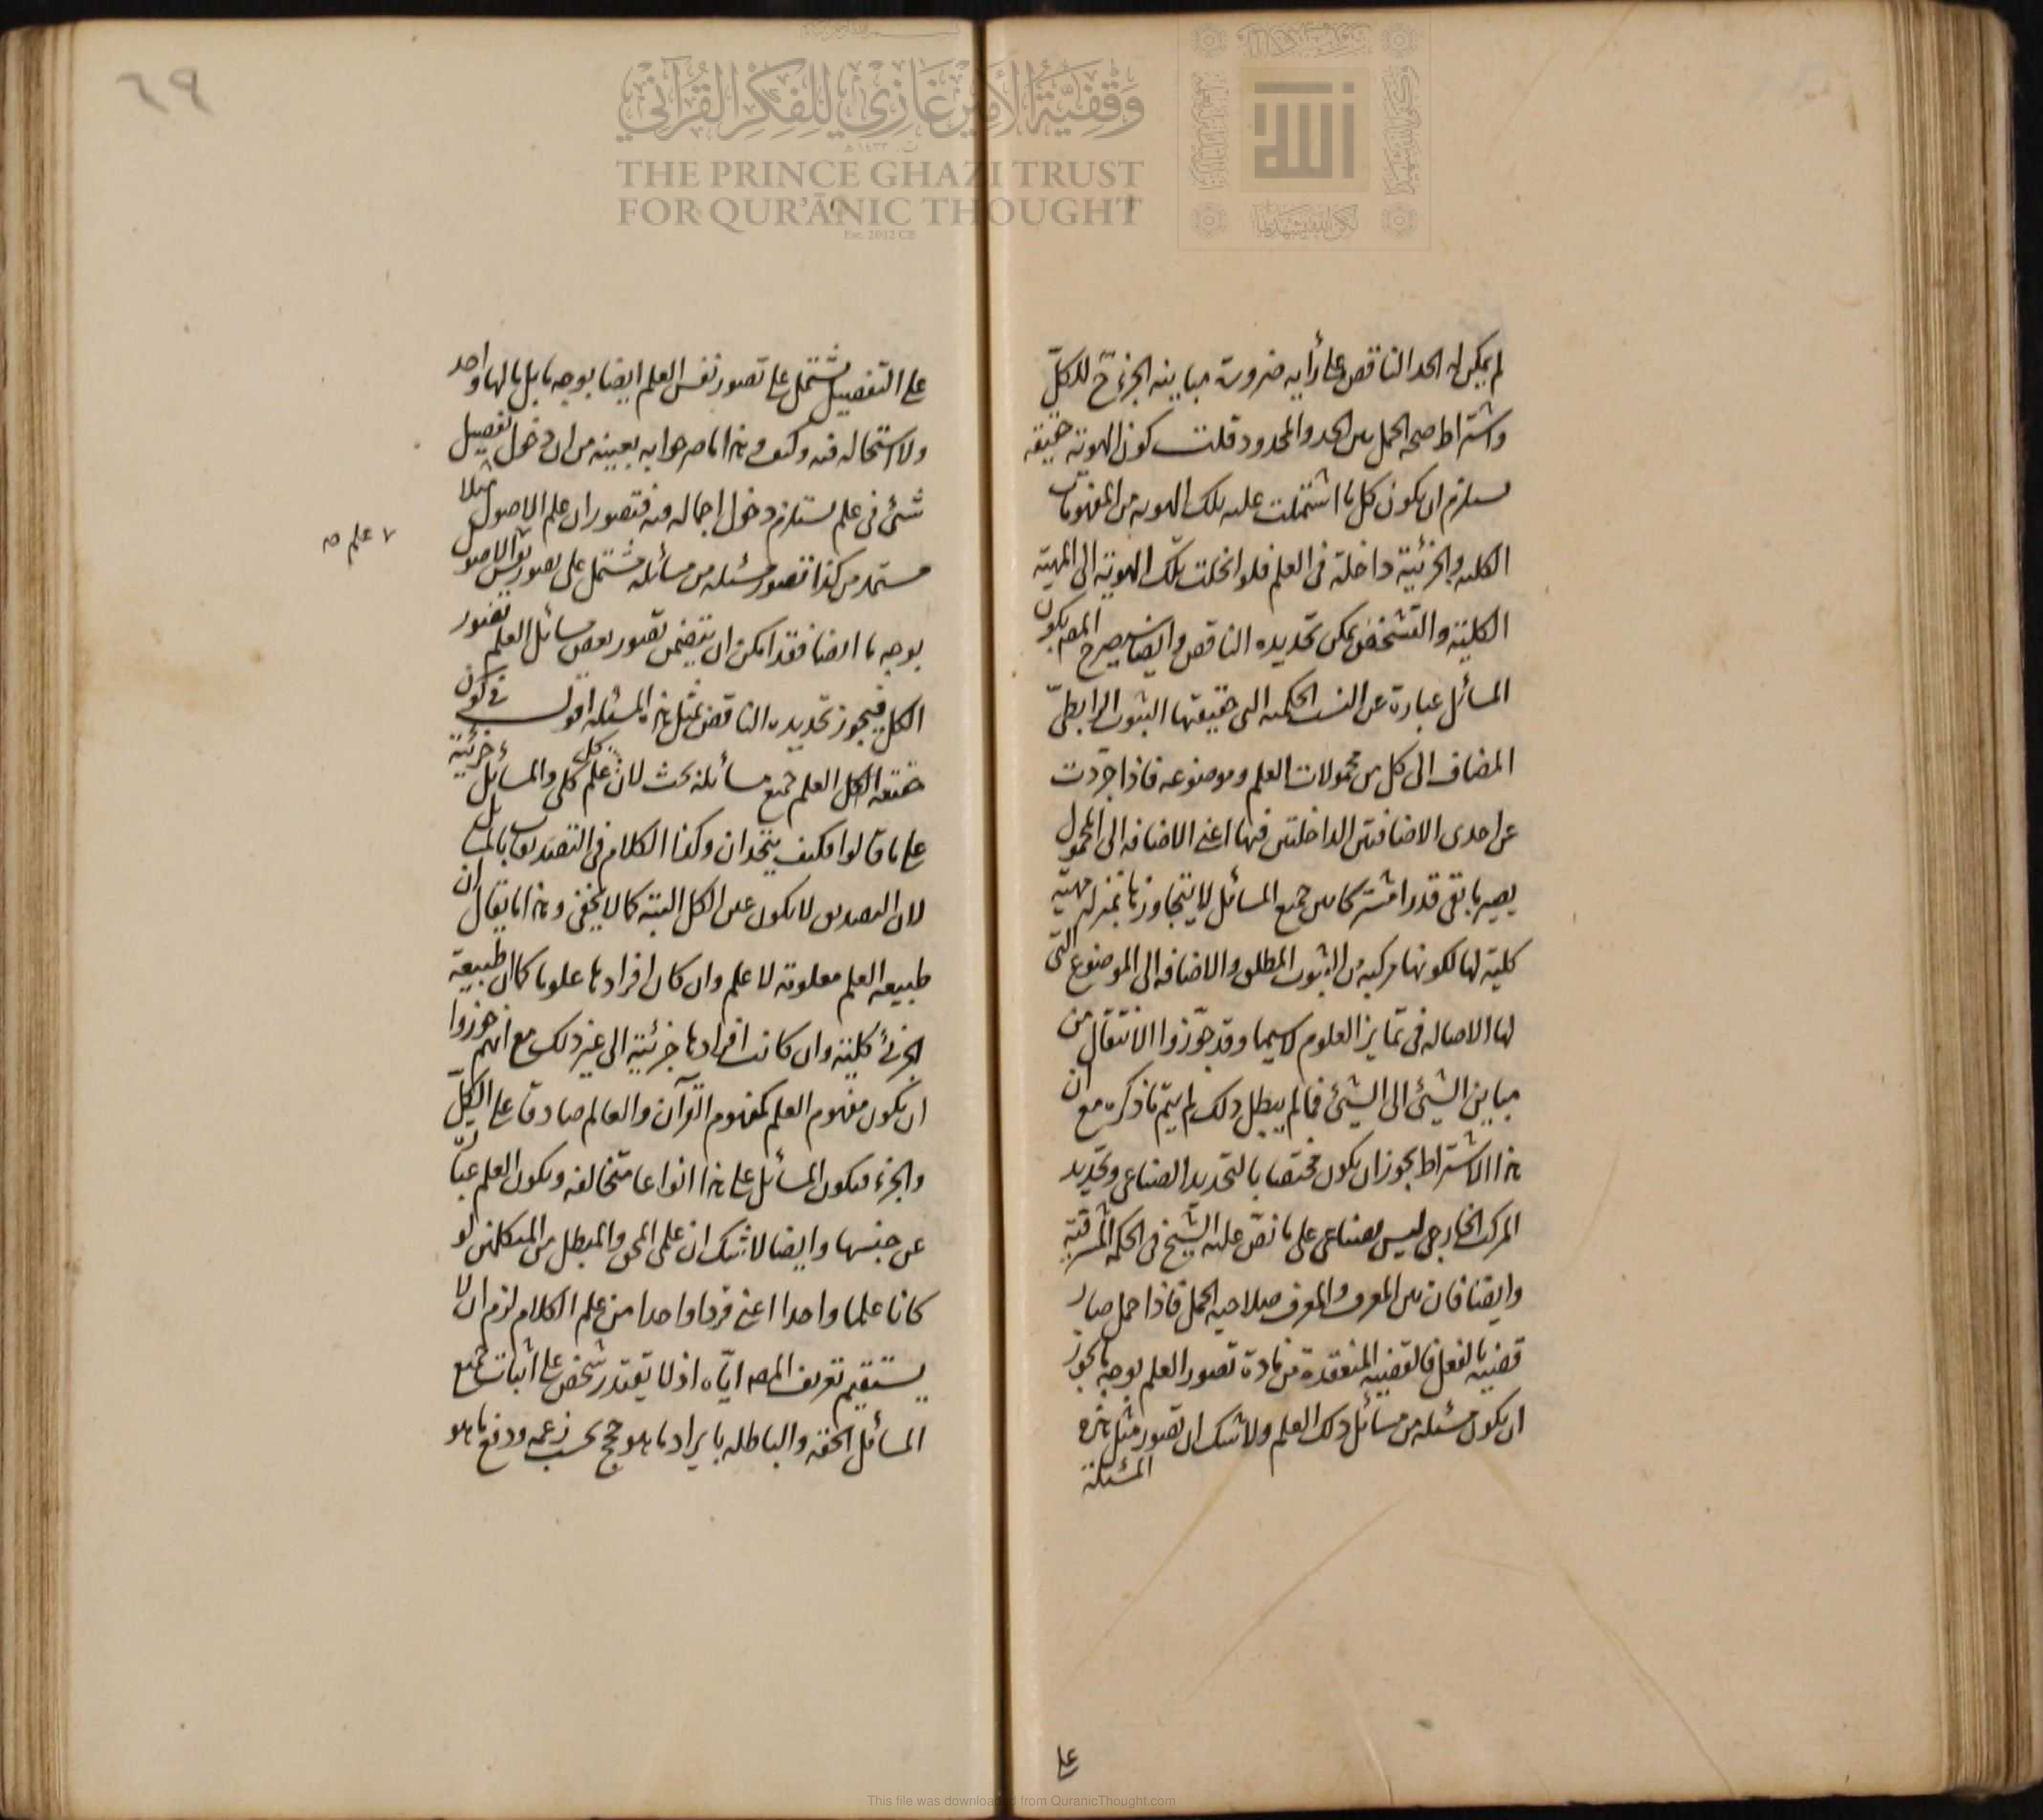 لم يمكن له الحد الناقص على رأيه ضرورة مباينة الجزء ح للكل
واشتراط صحة الحمل بين الحد والمحدود قلت كون الهوية حقيقة
يستلزم ان يكون كل ما اشتملت عليه تلك الهوية من المفهومات
الكلية والجزئية داخلة فى العلم فلو انحلت تلك الهوية الى المهية
الكلية والتشخص يمكن تحديده الناقص وايضا سيصرح المص بكون
المسائل عبارة عن النسب الحكمية التى حقيقتها الثبوت الرابطى
المضاف الى كل من محمولات العلم وموضوعه فاذا جردت
عن احدى الاضافتين الداخلتين فيها اعنى الاضافة الى المحمول
يصير ما بقى قدرا مشتركا بين جميع المسائل لا يتجاوزها بمنزلة مهية
كلية لها لكونها مركبة من الثبوت المطلق والاضافة الى الموضوع التى
لها الاصالة فى تمايز العلوم لا سيما وقد جوزوا الانتقال من
مباين الشيئ الى الشيئ فما لم يبطل ذلك لم يتم ما ذكره مع ان
هذا الاشتراط يجوز ان يكون مختصا بالتحديد الصناعى وتحديد
المركب الخارجى ليس بصناعى على ما نص عليه الشيخ فى الحكمة المشرقية
وايضا فان بين المعرف والمعرف صلاحية الحمل فاذا حمل صار
قضية بالفعل فالقضية المنعقدة من مادة تصور العلم بوجه ما يجوز
ان يكون مسئلة من مسائل ذلك العلم ولا شك ان تصور مثل هذه
المسئلة
على
٦٩
على التفصيل يشتمل على تصور نفس العلم ايضا بوجه ما بل مالها واحد
ولا استحالة فيه وكيف وهذا ما صرحوا به بعينه من ان دخول تفصيل
شئ فى علم يستلزم دخول اجماله فيه فتصور ان علم الاصول مثلا
مستمد من كذا تصور مسئلة من مسائله مشتمل على تصور نفس الاصول
٧ علم ص
بوجه ما ايضا فقد امكن ان يتضمن تصور بعض مسائل العلم تصور
الكل فيجوز تحديده الناقص بمثل هذه المسئلة اقول فى كون
حقيقة الكل العلم جميع مسائله بحث لان كل علم كلى والمسائل جزئية
على ما قالوا فكيف يتحدان وكذا الكلام فى التصديق بالمسائل
لان التصديق لا يكون عين الكل البتة كما لا يخفى وهذا ما يقال ان
طبيعة العلم معلومة لا علم وان كان افرادها علوما كما ان طبيعة
الجزئ كلية وان كانت افرادها جزئية الى غير ذلك مع انهم جوزوا
ان يكون مفهوم العلم كمفهوم القرآن والعالم صادقا على الكل
والجزء فيكون المسائل على هذا انواعا متخالفة ويكون العلم عبارة
عن جنسها وايضا لا شك ان علمى المحق والمبطل من المتكلمين لو
كانا علما واحدا اعنى فردا واحدا من علم الكلام لزم ان لا
يستقيم تعريف المص اياه اذ لا يقتدر شخص على اثبات جميع
المسائل الحقة والباطلة بايراد ما هو حجج بحسب زعمه ودفع ما هو
وَقْفِيَّةُ الأَمِيْرِ غَازِي لِلْفِكْرِ القُرْآنِي
THE PRINCE GHAZI TRUST
FOR QUR'ĀNIC THOUGHT
Est. 2012 CE
الله
This file was downloaded from QuranicThought.com